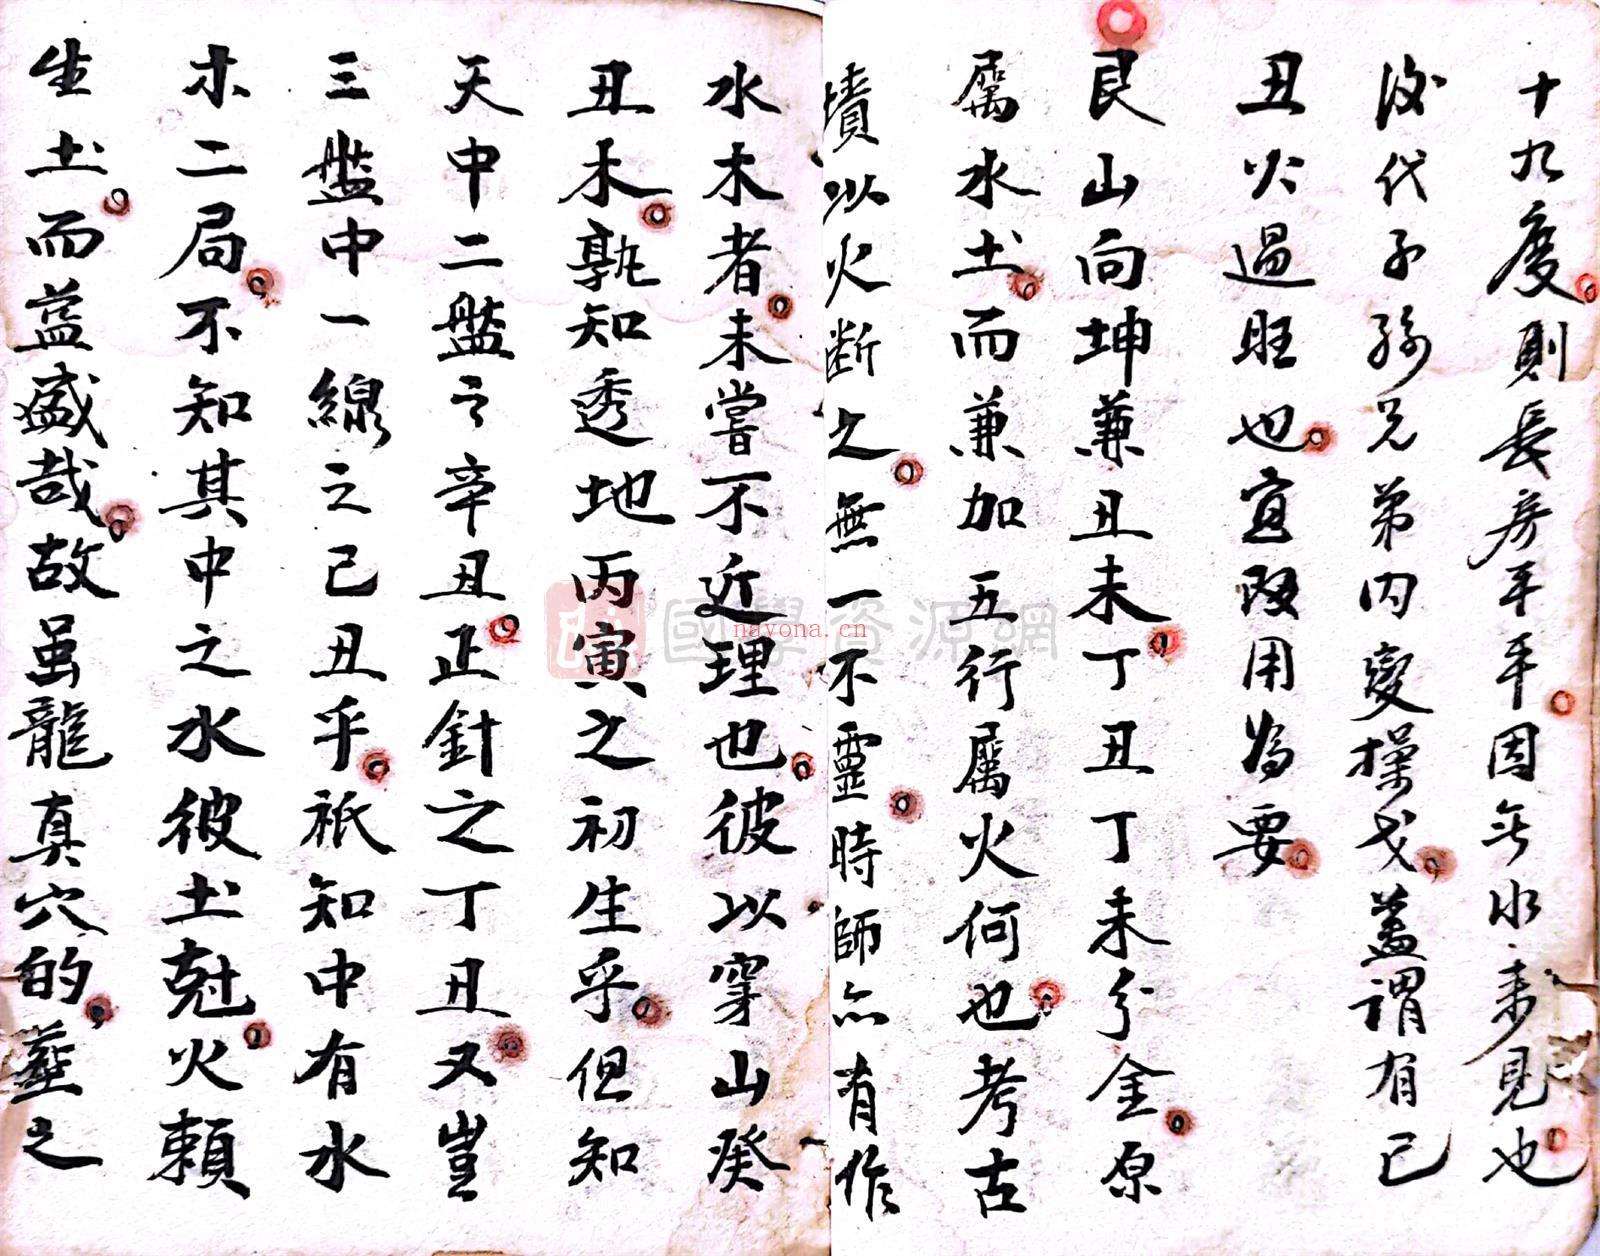 十九度則長房平平因無水來見也
後代子孫兄弟内变操戈蓋謂有己
丑火過旺也宜改用為要
艮山向坤兼丑未丁丑丁未分金原
属水土而兼加五行属火何也考古
墳以火断之無一不靈時師亦有作
水木者未嘗不近理也彼以穿山癸
丑木孰知透地丙寅之初生乎但知
天中二盤之辛丑正針之丁丑又豈
三盤中一線之己丑乎祇知中有水
木二局不知其中之水彼土尅火賴
生土而益盛哉故虽龍真穴的葬之
國學資源網
nayona.cn